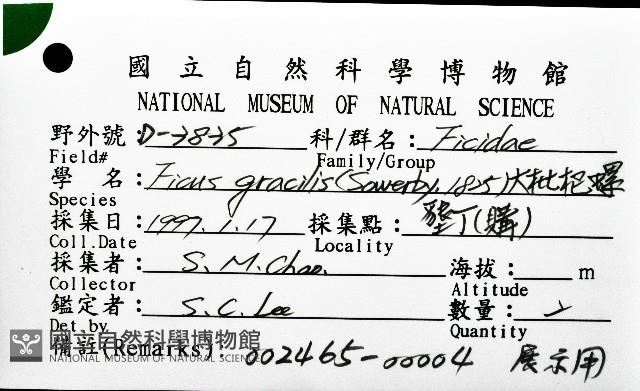 國立自然科學博物館
NATIONAL MUSEUM OF NATURAL SCIENCE
野外號: 科/群名: Ficidae
Field# Family/Group
學 名: Ficus gracilis (Sowerby, 1825) 大枇杷螺
Species
採集日: 1997.1.17 採集點: 墾丁(購)
Coll.Date Locality
採集者: S. M. Chao. 海拔: m
Collector Altitude
鑑定者: S. C. Lee 數量:
Det.by Quantity
備註(Remarks): 002465-00004 展示用
國立自然科學博物館
NATIONAL MUSEUM OF NATURAL SCIENCE